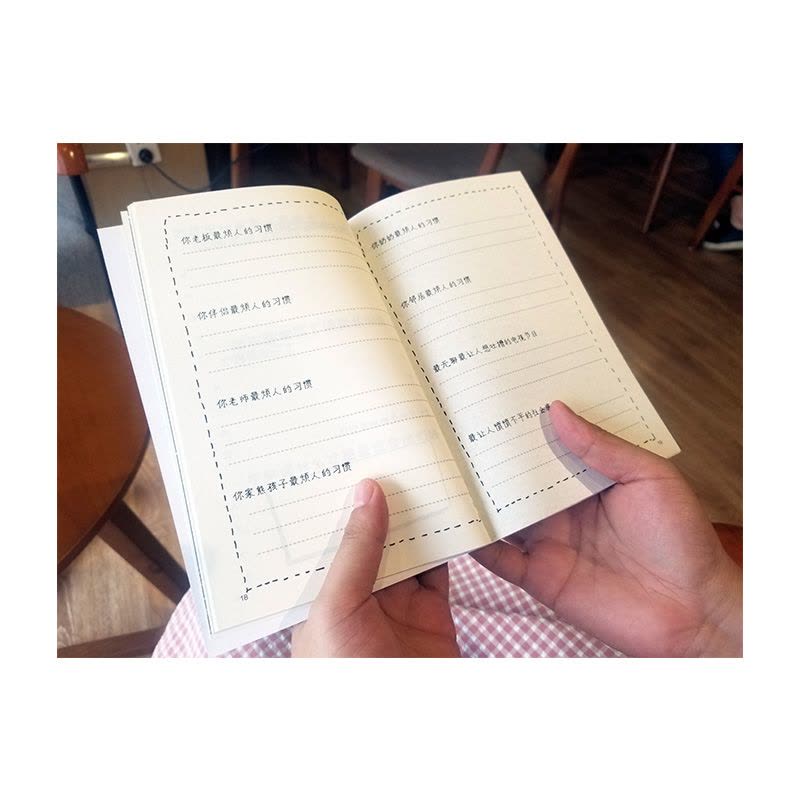 你老板最烦人的习惯
你伴侣最烦人的习惯
你老师最烦人的习惯
你家熊孩子最烦人的习惯
18
你奶奶最烦人的习惯
你邻居最烦人的习惯
最无聊最让人想吐槽的电视节目
最让人愤愤不平的社会